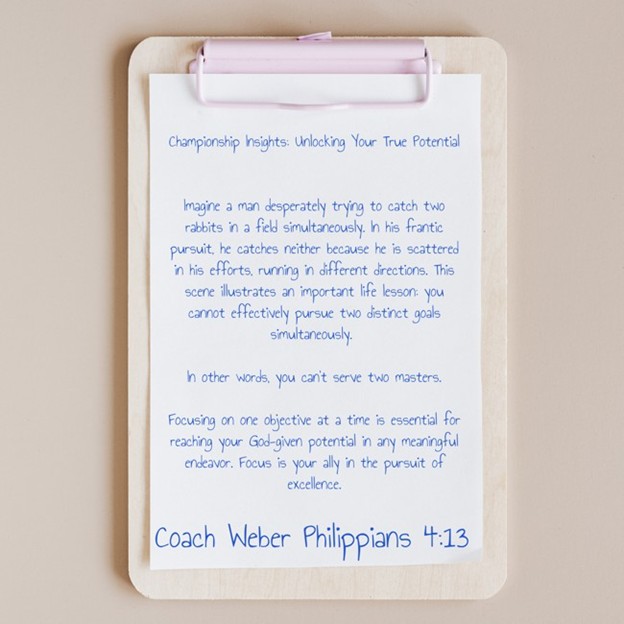 Championship Insights: Unlocking Your True Potential
Imagine a man desperately trying to catch two
rabbits in a field simultaneously. In his frantic
pursuit, he catches neither because he is scattered
in his efforts, running in different directions. This
scene illustrates an important life lesson: you
cannot effectively pursue two distinct goals
simultaneously.
In other words, you can't serve two masters.
Focusing on one objective at a time is essential for
reaching your God-given potential in any meaningful
endeavor. Focus is your ally in the pursuit of
excellence.
Coach Weber Philippians 4:13